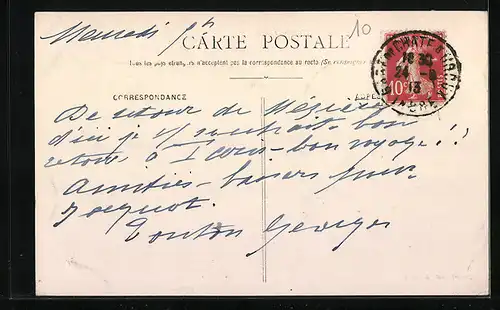 10
CARTE POSTALE
Tous les pays étrangers n'acceptent pas la correspondance au recto (Se renseigner
CORRESPONDANCE
10c
18 30
24
13
INDRE
De retour de Mézières
d'ici je souhait bon
retour à bon voyage !!
Amitiés - baisers pour
Jacquot.
Tonton Georges